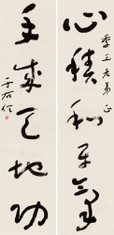 心積和平氣
老弟正
手成天地功
于右任